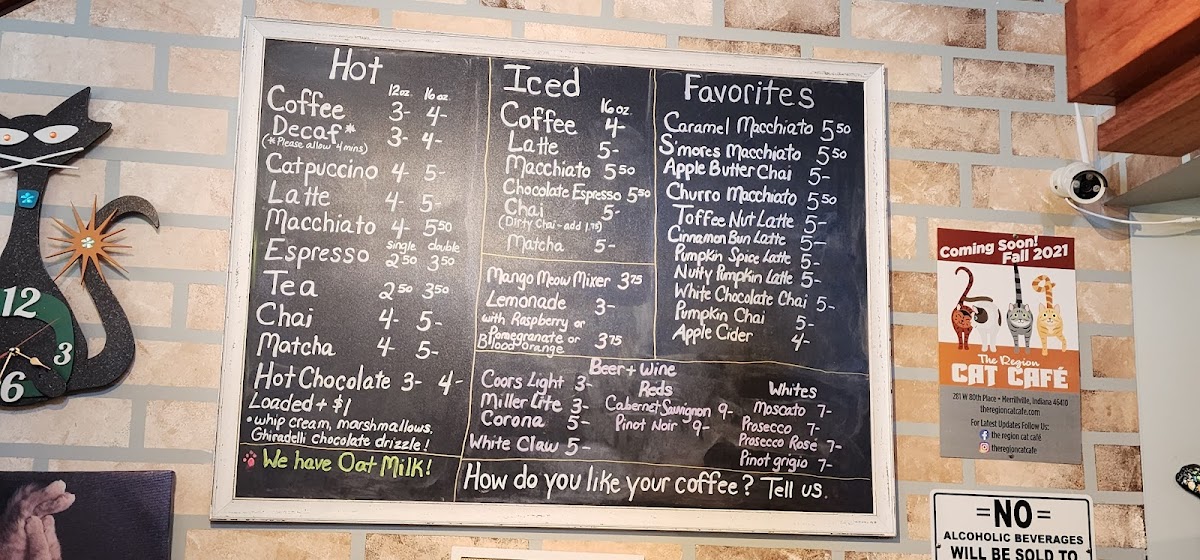 Hot
12oz. 16oz.
Coffee 3- 4-
Decaf* 3- 4-
(*Please allow 4 mins)
Catpuccino 4- 5-
Latte 4- 5-
Macchiato 4- 5 50
single double
Espresso 2 50 3 50
Tea 2 50 3 50
Chai 4- 5-
Matcha 4- 5-
Hot Chocolate 3- 4-
Loaded + $1
• whip cream, marshmallows,
Ghiradelli chocolate drizzle!
We have Oat Milk!
Iced
16oz.
Coffee 4-
Latte 5-
Macchiato 5 50
Chocolate Espresso 5 50
Chai 5-
(Dirty Chai - add 1.75)
Matcha 5-
Mango Meow Mixer 3 75
Lemonade 3-
with Raspberry or
Pomegranate or
Blood Orange 3 75
Favorites
Caramel Macchiato 5 50
S'mores Macchiato 5 50
Apple Butter Chai 5-
Churro Macchiato 5 50
Toffee Nut Latte 5-
Cinnamon Bun Latte 5-
Pumpkin Spice Latte 5-
Nutty Pumpkin Latte 5-
White Chocolate Chai 5-
Pumpkin Chai 5-
Apple Cider 4-
Beer + Wine
Coors Light 3-
Miller Lite 3-
Corona 5-
White Claw 5-
Reds
Cabernet Sauvignon 9-
Pinot Noir 9-
Whites
Moscato 7-
Prosecco 7-
Prosecco Rosé 7-
Pinot grigio 7-
How do you like your coffee? Tell us.
12
3
6
Coming Soon!
Fall 2021
The Region
CAT CAFÉ
281 W 80th Place • Merrillville, Indiana 46410
theregioncatcafe.com
For Latest Updates Follow Us:
the region cat café
theregioncatcafe
=NO=
ALCOHOLIC BEVERAGES
WILL BE SOLD TO